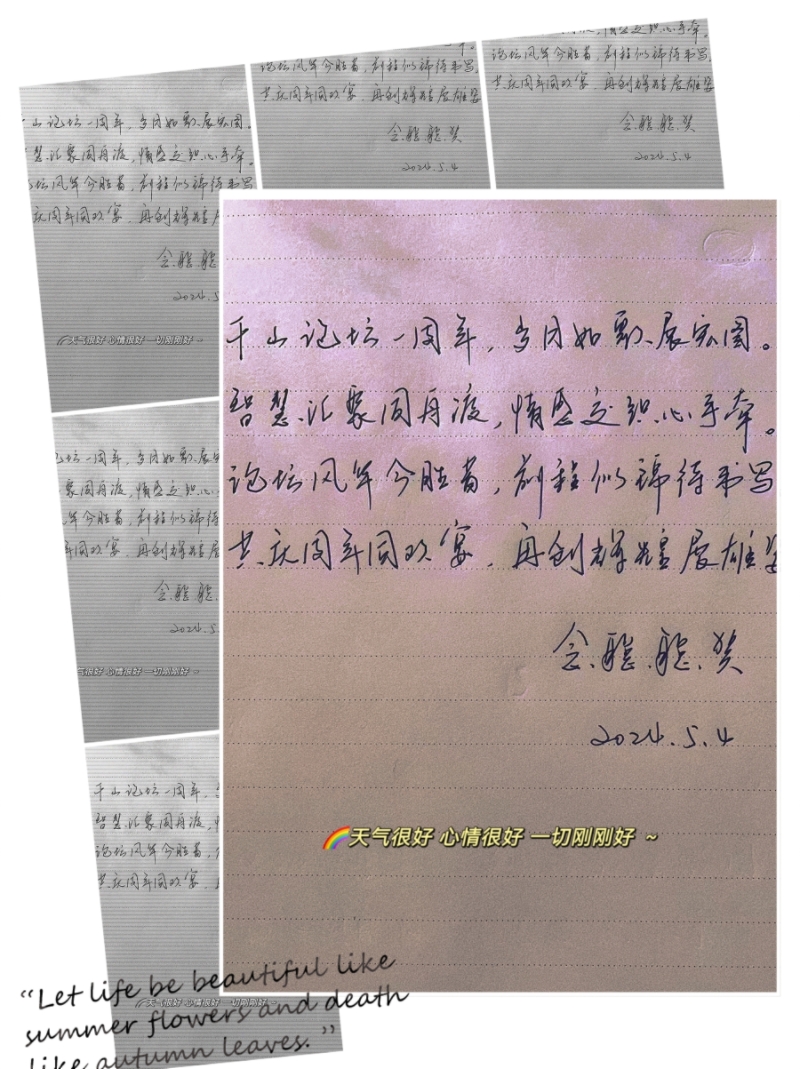 千山论坛一周年，岁月如歌展宏图。
智慧汇聚同舟渡，情感交织心手牵。
论坛风华今胜昔，前程似锦待书写
共庆周年同欢宴，再创辉煌展雄姿
2024.5.4
🌈天气很好 心情很好 一切刚刚好 ~
“Let life be beautiful like
summer flowers and death
like autumn leaves.”